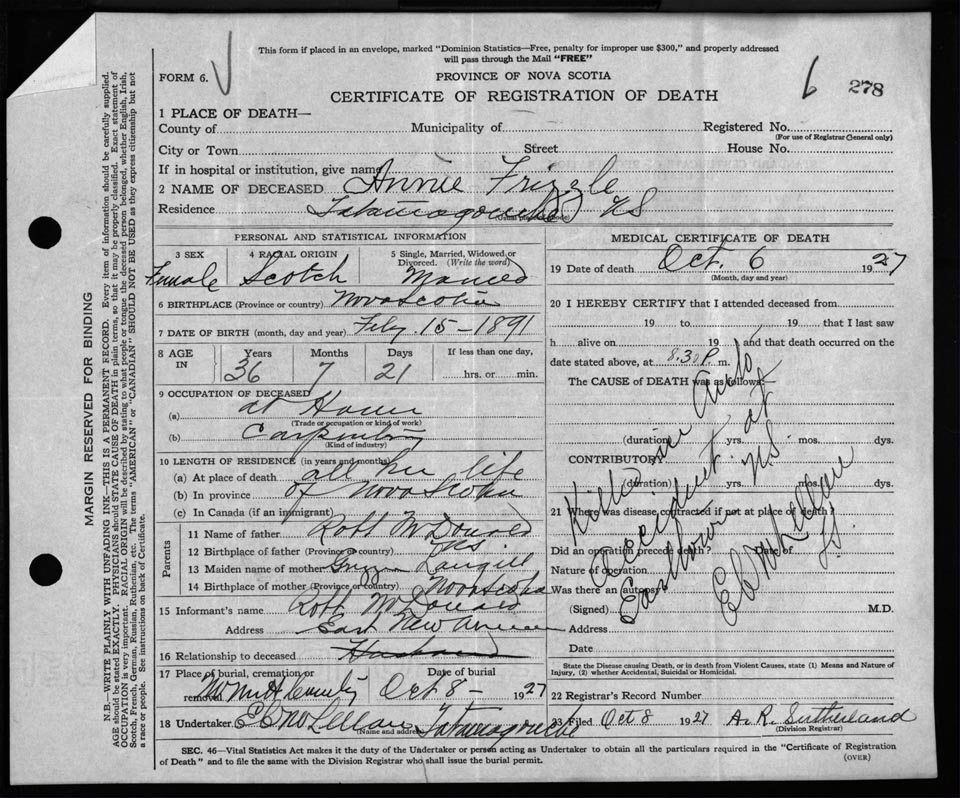 This form if placed in an envelope, marked "Dominion Statistics—Free, penalty for improper use $300," and properly addressed
will pass through the Mail "FREE"
FORM 6.
PROVINCE OF NOVA SCOTIA
6 278
CERTIFICATE OF REGISTRATION OF DEATH
1 PLACE OF DEATH—
County of Municipality of Registered No.
(For use of Registrar General only)
City or Town Street House No.
If in hospital or institution, give name
2 NAME OF DECEASED Annie Frizzle
Residence Tatamagouche NS
PERSONAL AND STATISTICAL INFORMATION
3 SEX 4 RACIAL ORIGIN 5 Single, Married, Widowed or Divorced. (Write the word)
Female Scotch Married
6 BIRTHPLACE (Province or country) Nova Scotia
7 DATE OF BIRTH (month, day and year) Feby 15-1891
8 AGE IN Years Months Days If less than one day,
36 7 21 hrs. or min.
9 OCCUPATION OF DECEASED
(a) at Home
(Trade or occupation or kind of work)
(b)
(Kind of industry)
10 LENGTH OF RESIDENCE (in years and months)
(a) At place of death all her life
(b) In province of Nova Scotia
(c) In Canada (if an immigrant)
Parents
11 Name of father Robt McDonald
12 Birthplace of father (Province or country) NS
13 Maiden name of mother Langill
14 Birthplace of mother (Province or country) Nova Scotia
15 Informant's name Robt McDonald
Address East New Annan
16 Relationship to deceased Husband
17 Place of burial, cremation or removal Date of burial
Oct 8 - 1927
18 Undertaker E C McLellan Tatamagouche
(Name and address)
MEDICAL CERTIFICATE OF DEATH
19 Date of death Oct. 6 1927
(Month, day and year)
20 I HEREBY CERTIFY that I attended deceased from
19 to 19 that I last saw
h alive on 19 and that death occurred on the
date stated above, at 8.30 P. m.
The CAUSE of DEATH was as follows:
Killed in Auto
Accident at
Eastville NS
(duration) yrs. mos. dys.
CONTRIBUTORY
(duration) yrs. mos. dys.
21 Where was disease contracted if not at place of death?
Did an operation precede death? Date of
Nature of operation
Was there an autopsy?
(Signed) M.D.
Address
Date
State the Disease causing Death, or in death from Violent Causes, state (1) Means and Nature of
Injury, (2) whether Accidental, Suicidal or Homicidal.
22 Registrar's Record Number
23 Filed Oct 8 1927 A. R. Sutherland
(Division Registrar)
SEC. 46—Vital Statistics Act makes it the duty of the Undertaker or person acting as Undertaker to obtain all the particulars required in the "Certificate of Registration
of Death" and to file the same with the Division Registrar who shall issue the burial permit.
(OVER)
MARGIN RESERVED FOR BINDING
N.B.—WRITE PLAINLY WITH UNFADING INK—THIS IS A PERMANENT RECORD. Every item of information should be carefully supplied.
AGE should be stated EXACTLY. PHYSICIANS should STATE CAUSE OF DEATH in plain terms, so that it may be properly classified. Exact statement of
OCCUPATION is very important. RACIAL ORIGIN will be described by stating to what people or tongue the deceased person belonged, whether English, Irish,
Scotch, French, German, Russian, Ruthenian, etc. The terms "AMERICAN" or "CANADIAN" SHOULD NOT BE USED as they express citizenship but not
a race or people. See instructions on back of Certificate.